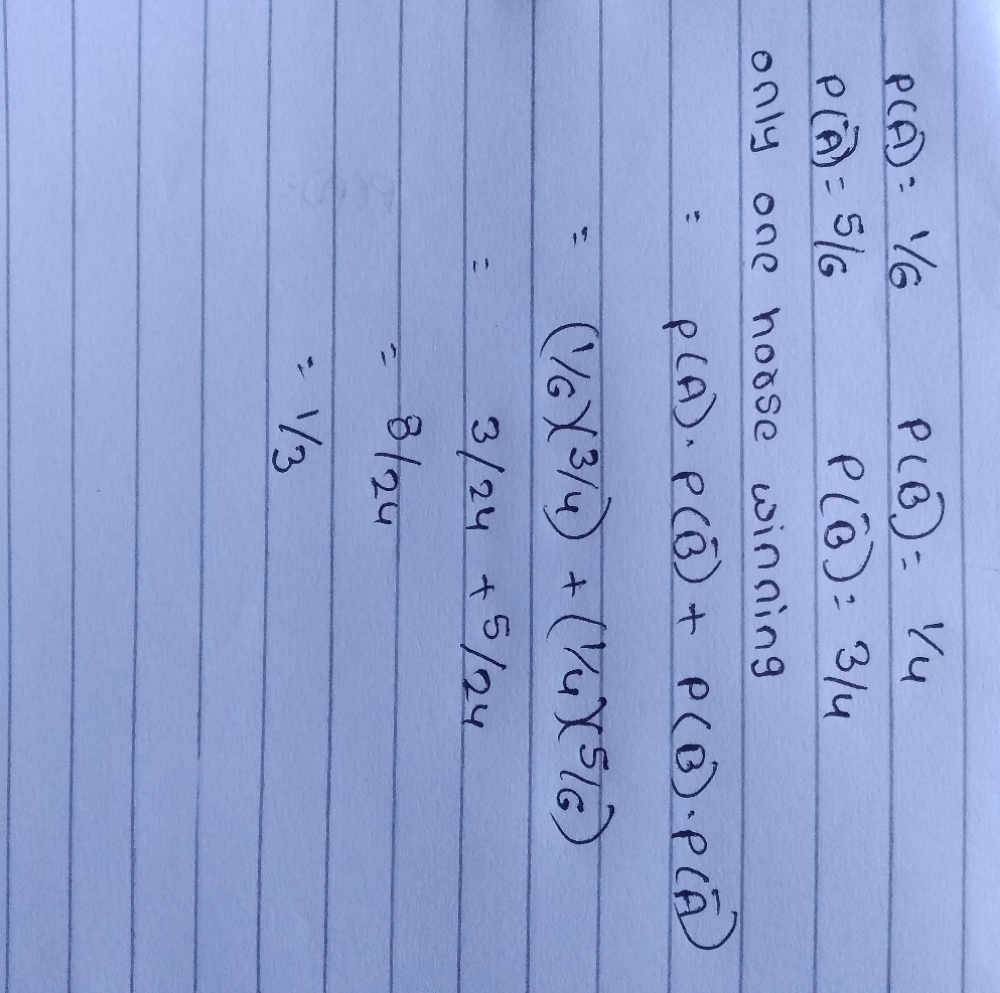 P(A) = 1/6 P(B) = 1/4
P(Ā) = 5/6 P(B̄) = 3/4
only one horse winning
= P(A).P(B̄) + P(B).P(Ā)
= (1/6)(3/4) + (1/4)(5/6)
= 3/24 + 5/24
= 8/24
= 1/3